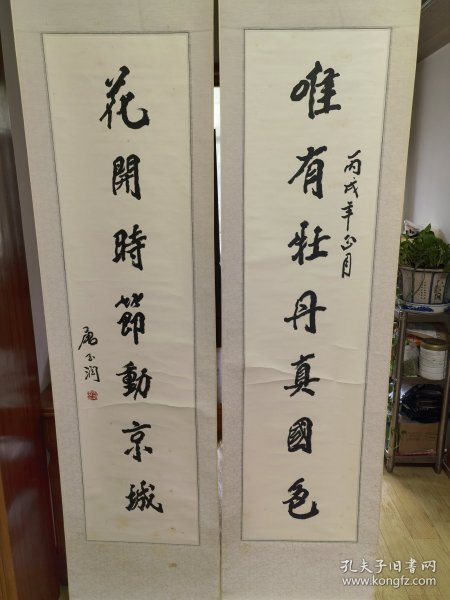 唯有牡丹真國色
丙戌年正月
花開時節動京城
孔夫子旧书网
www.kongfz.com